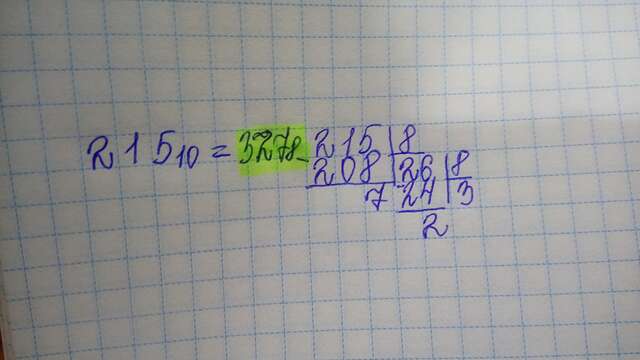 215₁₀ = 327₈ - 215 | 8
208 | 26 | 8
7 24 | 3
2